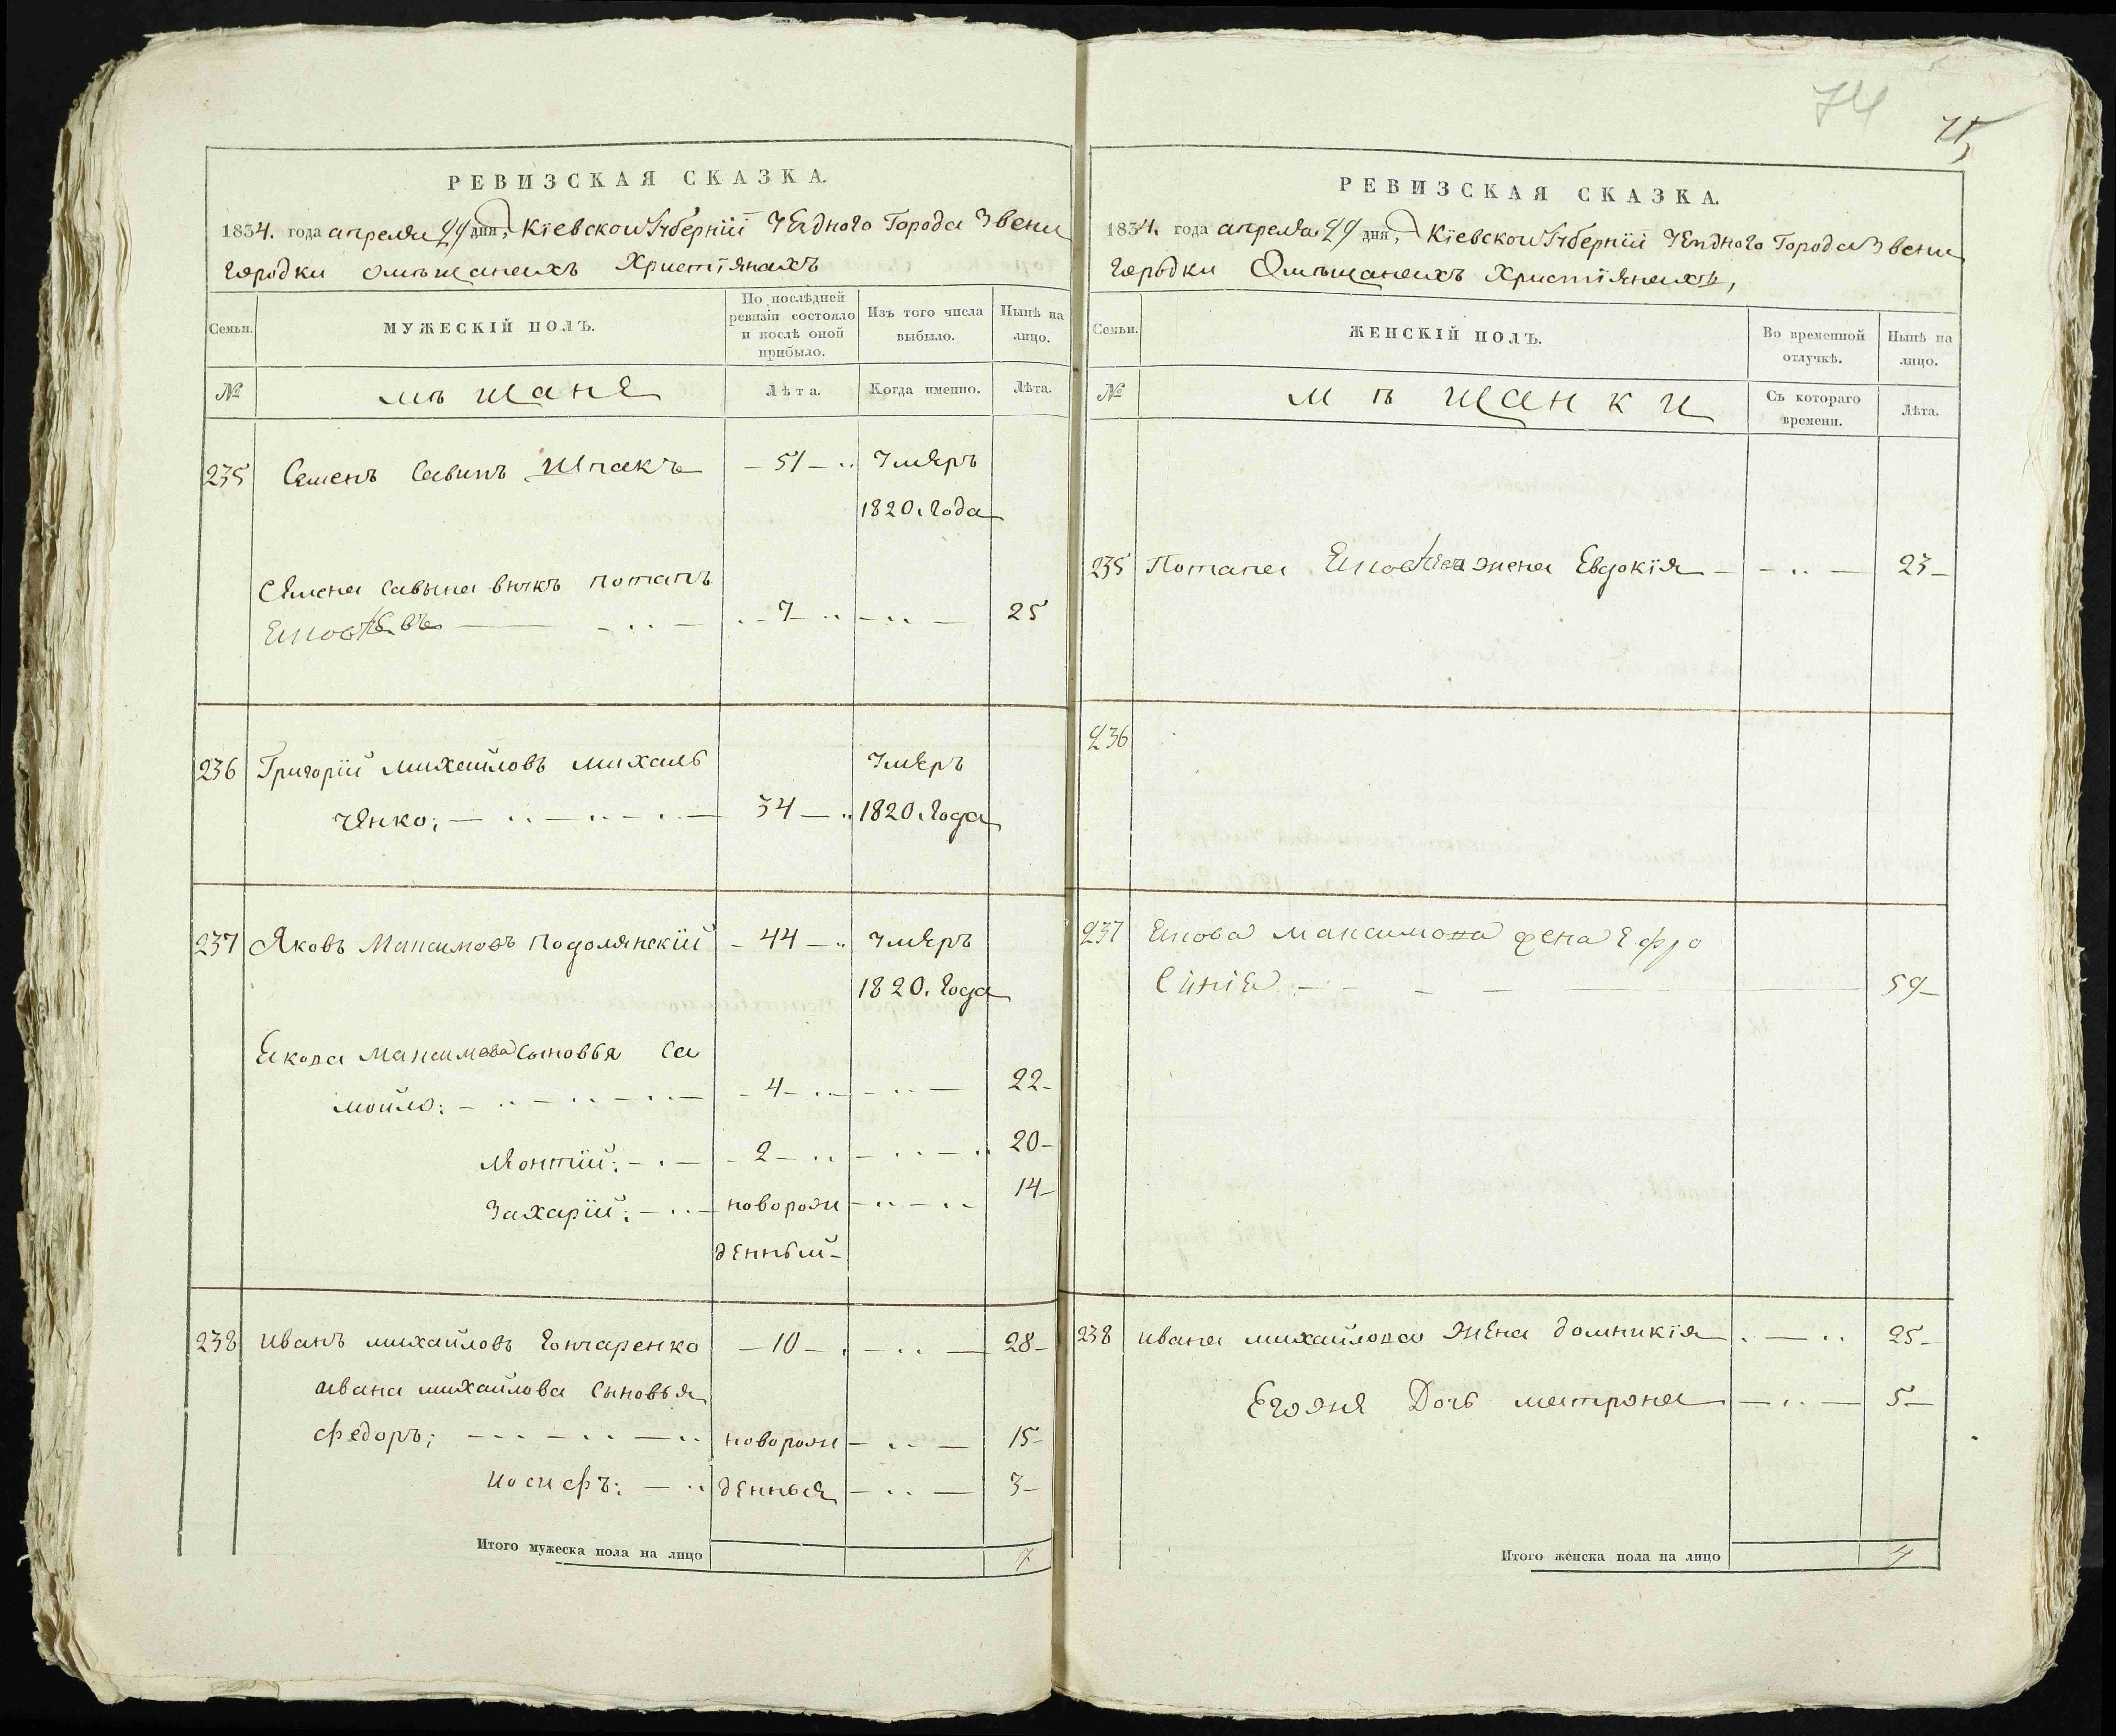 РЕВИЗСКАЯ СКАЗКА.
1834. года апреля 29 дня, Кіевской Губерніи Уезднаго Города Звени
городки омѣщанахъ Христіянахъ
Семьи.
МУЖЕСКІЙ ПОЛЪ.
По послѣдней ревизіи состояло и послѣ оной прибыло.
Изъ того числа выбыло.
Нынѣ на лицо.
№
мѣщане
Лѣта.
Когда именно.
Лѣта.
235 Семенъ Савинъ Шпакъ — 51 — Умеръ
1820. года
Семена Савына внукъ потапъ
7 25
236 Григорій михайловъ михаль
Умеръ
ченко; 34 — 1820. года
237 Яковъ Максимовъ подолянскій — 44 — умеръ
1820. года
Екова Максимова сыновья Са
мойло: 4 22
Леонтій: 2 20
Захарій: новорож 14
денный
238 иванъ михайловъ Гончаренко — 10 — 28
ивана михайлова сыновья
федоръ; новорож 15
иосифъ: денныя 3
Итого мужеска пола на лицо 7
74
75
РЕВИЗСКАЯ СКАЗКА.
1834. года апреля 29 дня, Кіевской Губерніи Уезднаго Города Звени
городки Омѣщанахъ христіянахъ,
Семьи.
ЖЕНСКІЙ ПОЛЪ.
Во временной отлучкѣ.
Нынѣ на лицо.
№
мѣщанки
Съ котораго времени.
Лѣта.
235 Потапа жена Евдокія 23
236
237 Екова максимова жена Ефро
синіе 59
238 ивана михайлова жена домникія 25
Егоже Дочь матрона 5
Итого женска пола на лицо 4